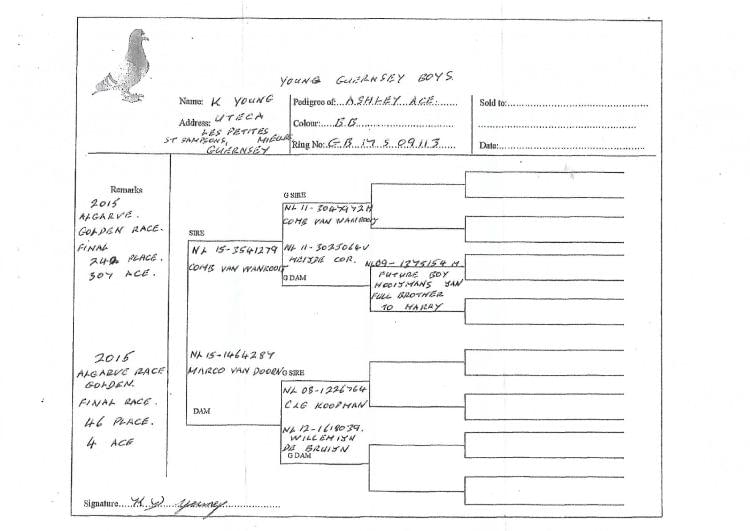 YOUNG GUERNSEY BOYS
Name: K YOUNG
Address: UTECA
LES PETITES
ST SAMPSONS, MIELLES
GUERNSEY
Pedigree of: ASHLEY ACE
Colour: BB
Ring No: GB 17 S 09113
Sold to:
Date:
Remarks
2015
ALGARVE.
GOLDEN RACE.
FINAL
242 PLACE.
307 ACE.
2015
ALGARVE RACE
GOLDEN.
FINAL RACE.
46 PLACE.
4 ACE
SIRE
NL 15-3541279
COMB VAN WANROOIJ
G SIRE
COMB VAN WANROOIJ
NL 11-3025064V
HEIJDE COR.
G DAM
NL09-1275154 M
FUTURE BOY
HOOIJMANS JAN
FULL BROTHER
TO HARRY
NL 15-1464287
MARCO VAN DOORN
DAM
G SIRE
NL 08-1226764
C&G KOOPMAN
NL 12-1618039.
WILLEMIJN
DE BRUIJN
G DAM
Signature